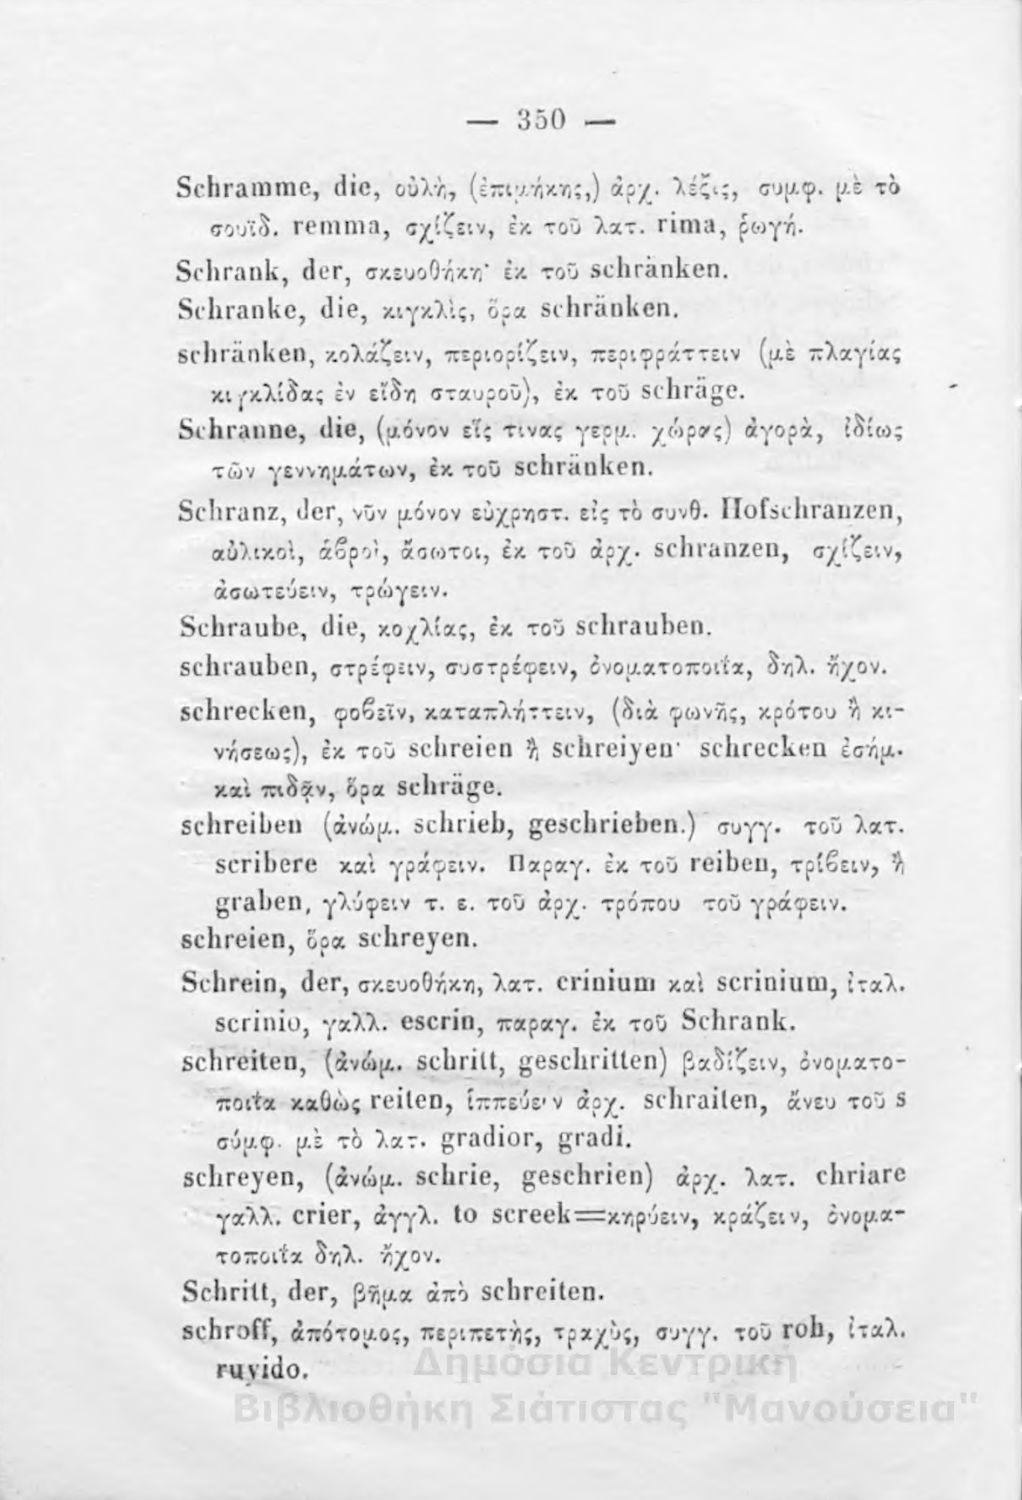 — 350 —
Schramme, die, οὐλὴ, (ἐπιμήκης,) ἀρχ. λέξις, συμφ. μὲ τὸ
σουϊδ. remma, σχίζειν, ἐκ τοῦ λατ. rima, ῥωγή.
Schrank, der, σκευοθήκη· ἐκ τοῦ schränken.
Schranke, die, κιγκλὶς, ὅρα schränken.
schränken, κολάζειν, περιορίζειν, περιφράττειν (μὲ πλαγίας
κιγκλίδας ἐν εἴδη σταυροῦ), ἐκ τοῦ schräge.
Schranne, die, (μόνον εἴς τινας γερμ. χώρας) ἀγορὰ, ἰδίως
τῶν γεννημάτων, ἐκ τοῦ schränken.
Schranz, der, νῦν μόνον εὐχρηστ. εἰς τὸ συνθ. Hofschranzen,
αὐλικοὶ, ἁβροὶ, ἄσωτοι, ἐκ τοῦ ἀρχ. schranzen, σχίζειν,
ἀσωτεύειν, τρώγειν.
Schraube, die, κοχλίας, ἐκ τοῦ schrauben.
schrauben, στρέφειν, συστρέφειν, ὀνοματοποιΐα, δηλ. ἦχον.
schrecken, φοβεῖν, καταπλήττειν, (διὰ φωνῆς, κρότου ἢ κι-
νήσεως), ἐκ τοῦ schreien ἢ schreiyen· schrecken ἐσήμ.
καὶ πιδᾷν, ὅρα schräge.
schreiben (ἀνώμ. schrieb, geschrieben.) συγγ. τοῦ λατ.
scribere καὶ γράφειν. Παραγ. ἐκ τοῦ reiben, τρίβειν, ἢ
graben, γλύφειν τ. ε. τοῦ ἀρχ. τρόπου τοῦ γράφειν.
schreien, ὅρα schreyen.
Schrein, der, σκευοθήκη, λατ. crinium καὶ scrinium, ἰταλ.
scrinio, γαλλ. escrin, παραγ. ἐκ τοῦ Schrank.
schreiten, (ἀνώμ. schritt, geschritten) βαδίζειν, ὀνοματο-
ποιΐα καθὼς reiten, ἱππεύειν ἀρχ. schraiten, ἄνευ τοῦ s
σύμφ. μὲ τὸ λατ. gradior, gradi.
schreyen, (ἀνώμ. schrie, geschrien) ἀρχ. λατ. chriare
γαλλ. crier, ἀγγλ. to screek=κηρύειν, κράζειν, ὀνομα-
τοποιΐα δηλ. ἦχον.
Schritt, der, βῆμα ἀπὸ schreiten.
schroff, ἀπότομος, περιπετὴς, τραχὺς, συγγ. τοῦ roh, ἰταλ.
ruvido.
Δημόσια Κεντρική
Βιβλιοθήκη Σιάτιστας "Μανούσεια"